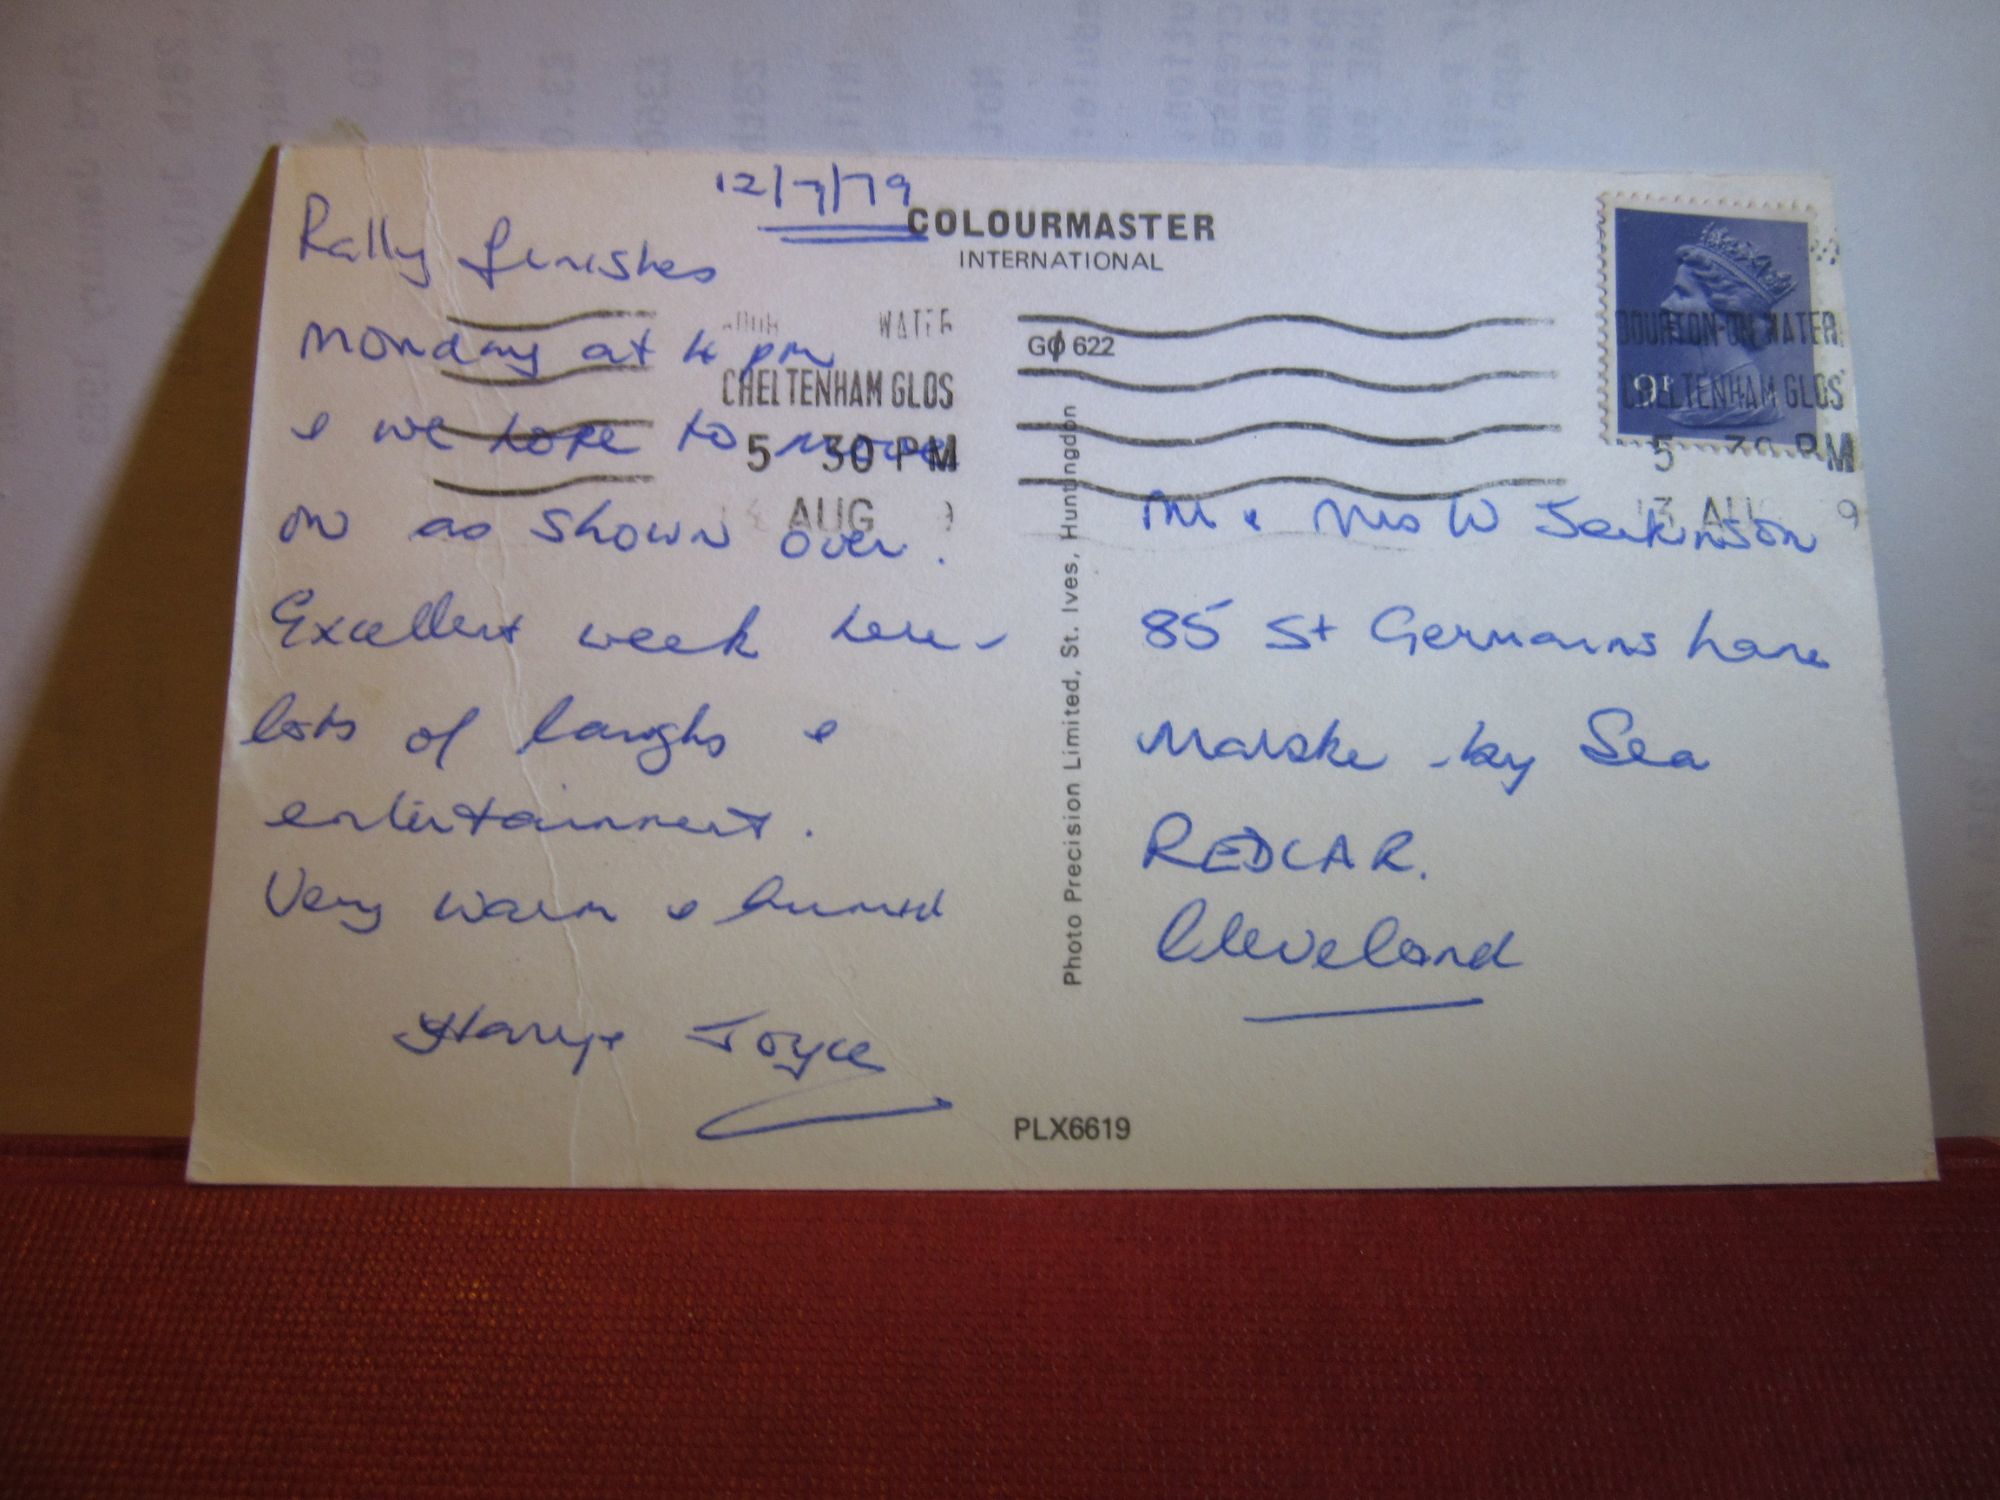 12/7/79
COLOURMASTER
INTERNATIONAL
Rally finishes
Monday at 4 pm
& we hope to move
on as shown over.
Excellent week here -
lots of laughs &
entertainment.
Very warm & humid
Harry & Joyce
WATER
CHELTENHAM GLOS
5 30 PM
AUG
GØ 622
BOURTON-ON-WATER
CHELTENHAM GLOS
5 30 PM
13 AU 9
9P
Photo Precision Limited, St. Ives, Huntingdon
Mr & Mrs W Jenkinson
85 St Germains Lane
Marske-by Sea
REDCAR.
Cleveland
PLX6619